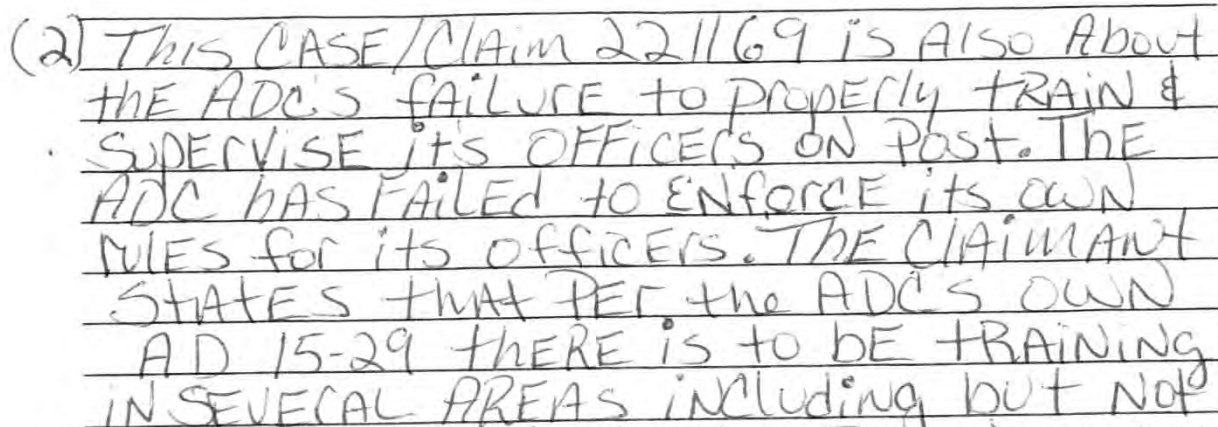 (2) This CASE/ClAim 221169 is Also About
thE ADC's fAiLurE to properly tRAiN &
SupErvisE it's OFFicErs ON Post. ThE
ADC hAS FAiLEd to ENforcE its owN
rulEs for its officErs. ThE ClAimANt
StAtES thAt PEr the ADC'S OWN
AD 15-29 thERE is to bE tRAiNiNg
iN SEVErAL AREAS iNcludiNg but Not